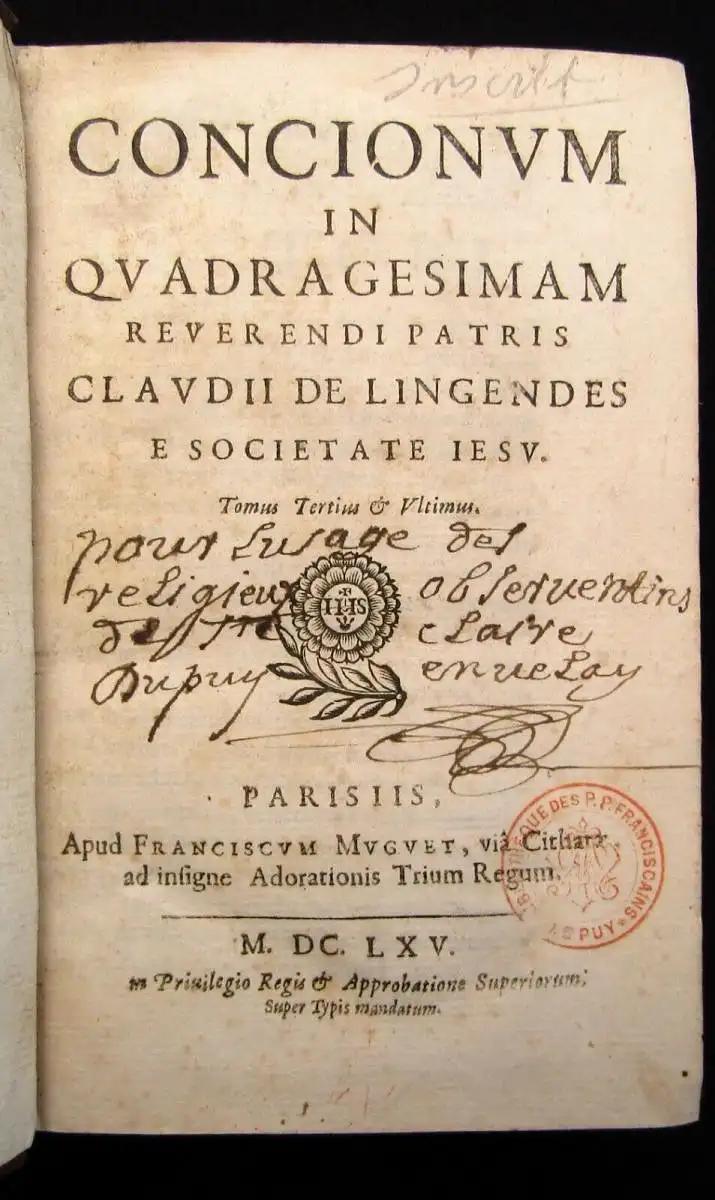 Inscrit
CONCIONVM
IN
QVADRAGESIMAM
REVERENDI PATRIS
CLAVDII DE LINGENDES
E SOCIETATE IESV.
Tomus Tertius & Vltimus.
pour Lusage des
religieux observentins
de Ste claire
Dupuy envelay
IHS
PARISIIS,
Apud FRANCISCVM MVGVET, viâ Citharæ,
ad insigne Adorationis Trium Regum.
M. DC. LXV.
m Priuilegio Regis & Approbatione Superiorum;
Super Typis mandatum.
BIBLIOTHEQUE DES P.P. FRANCISCAINS
LE PUY